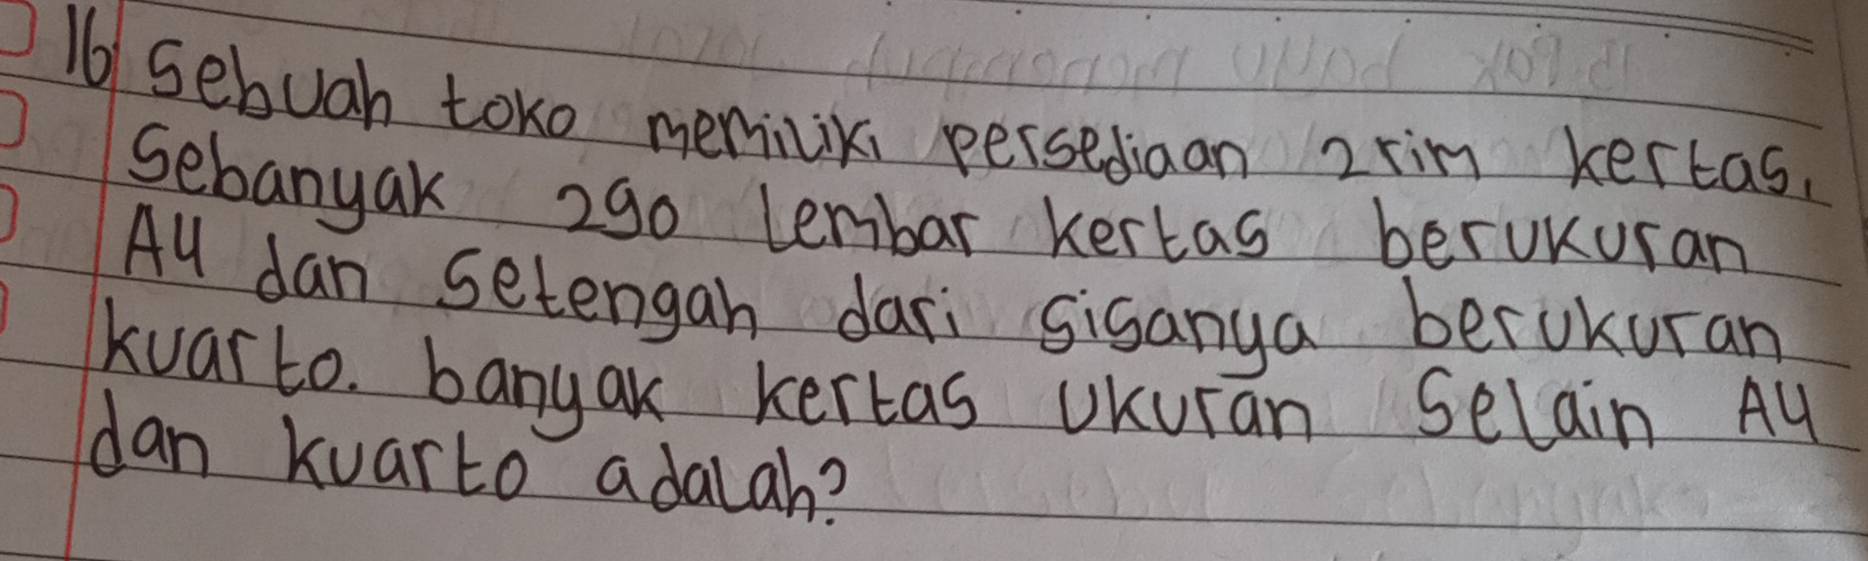 16 Sebuah toko memiliki persediaan 2 rim kertas.
Sebanyak 290 lembar kertas berukuran
A4 dan setengah dari sisanya berukuran
kuarto. banyak kertas ukuran selain A4
dan kuarto adalah?